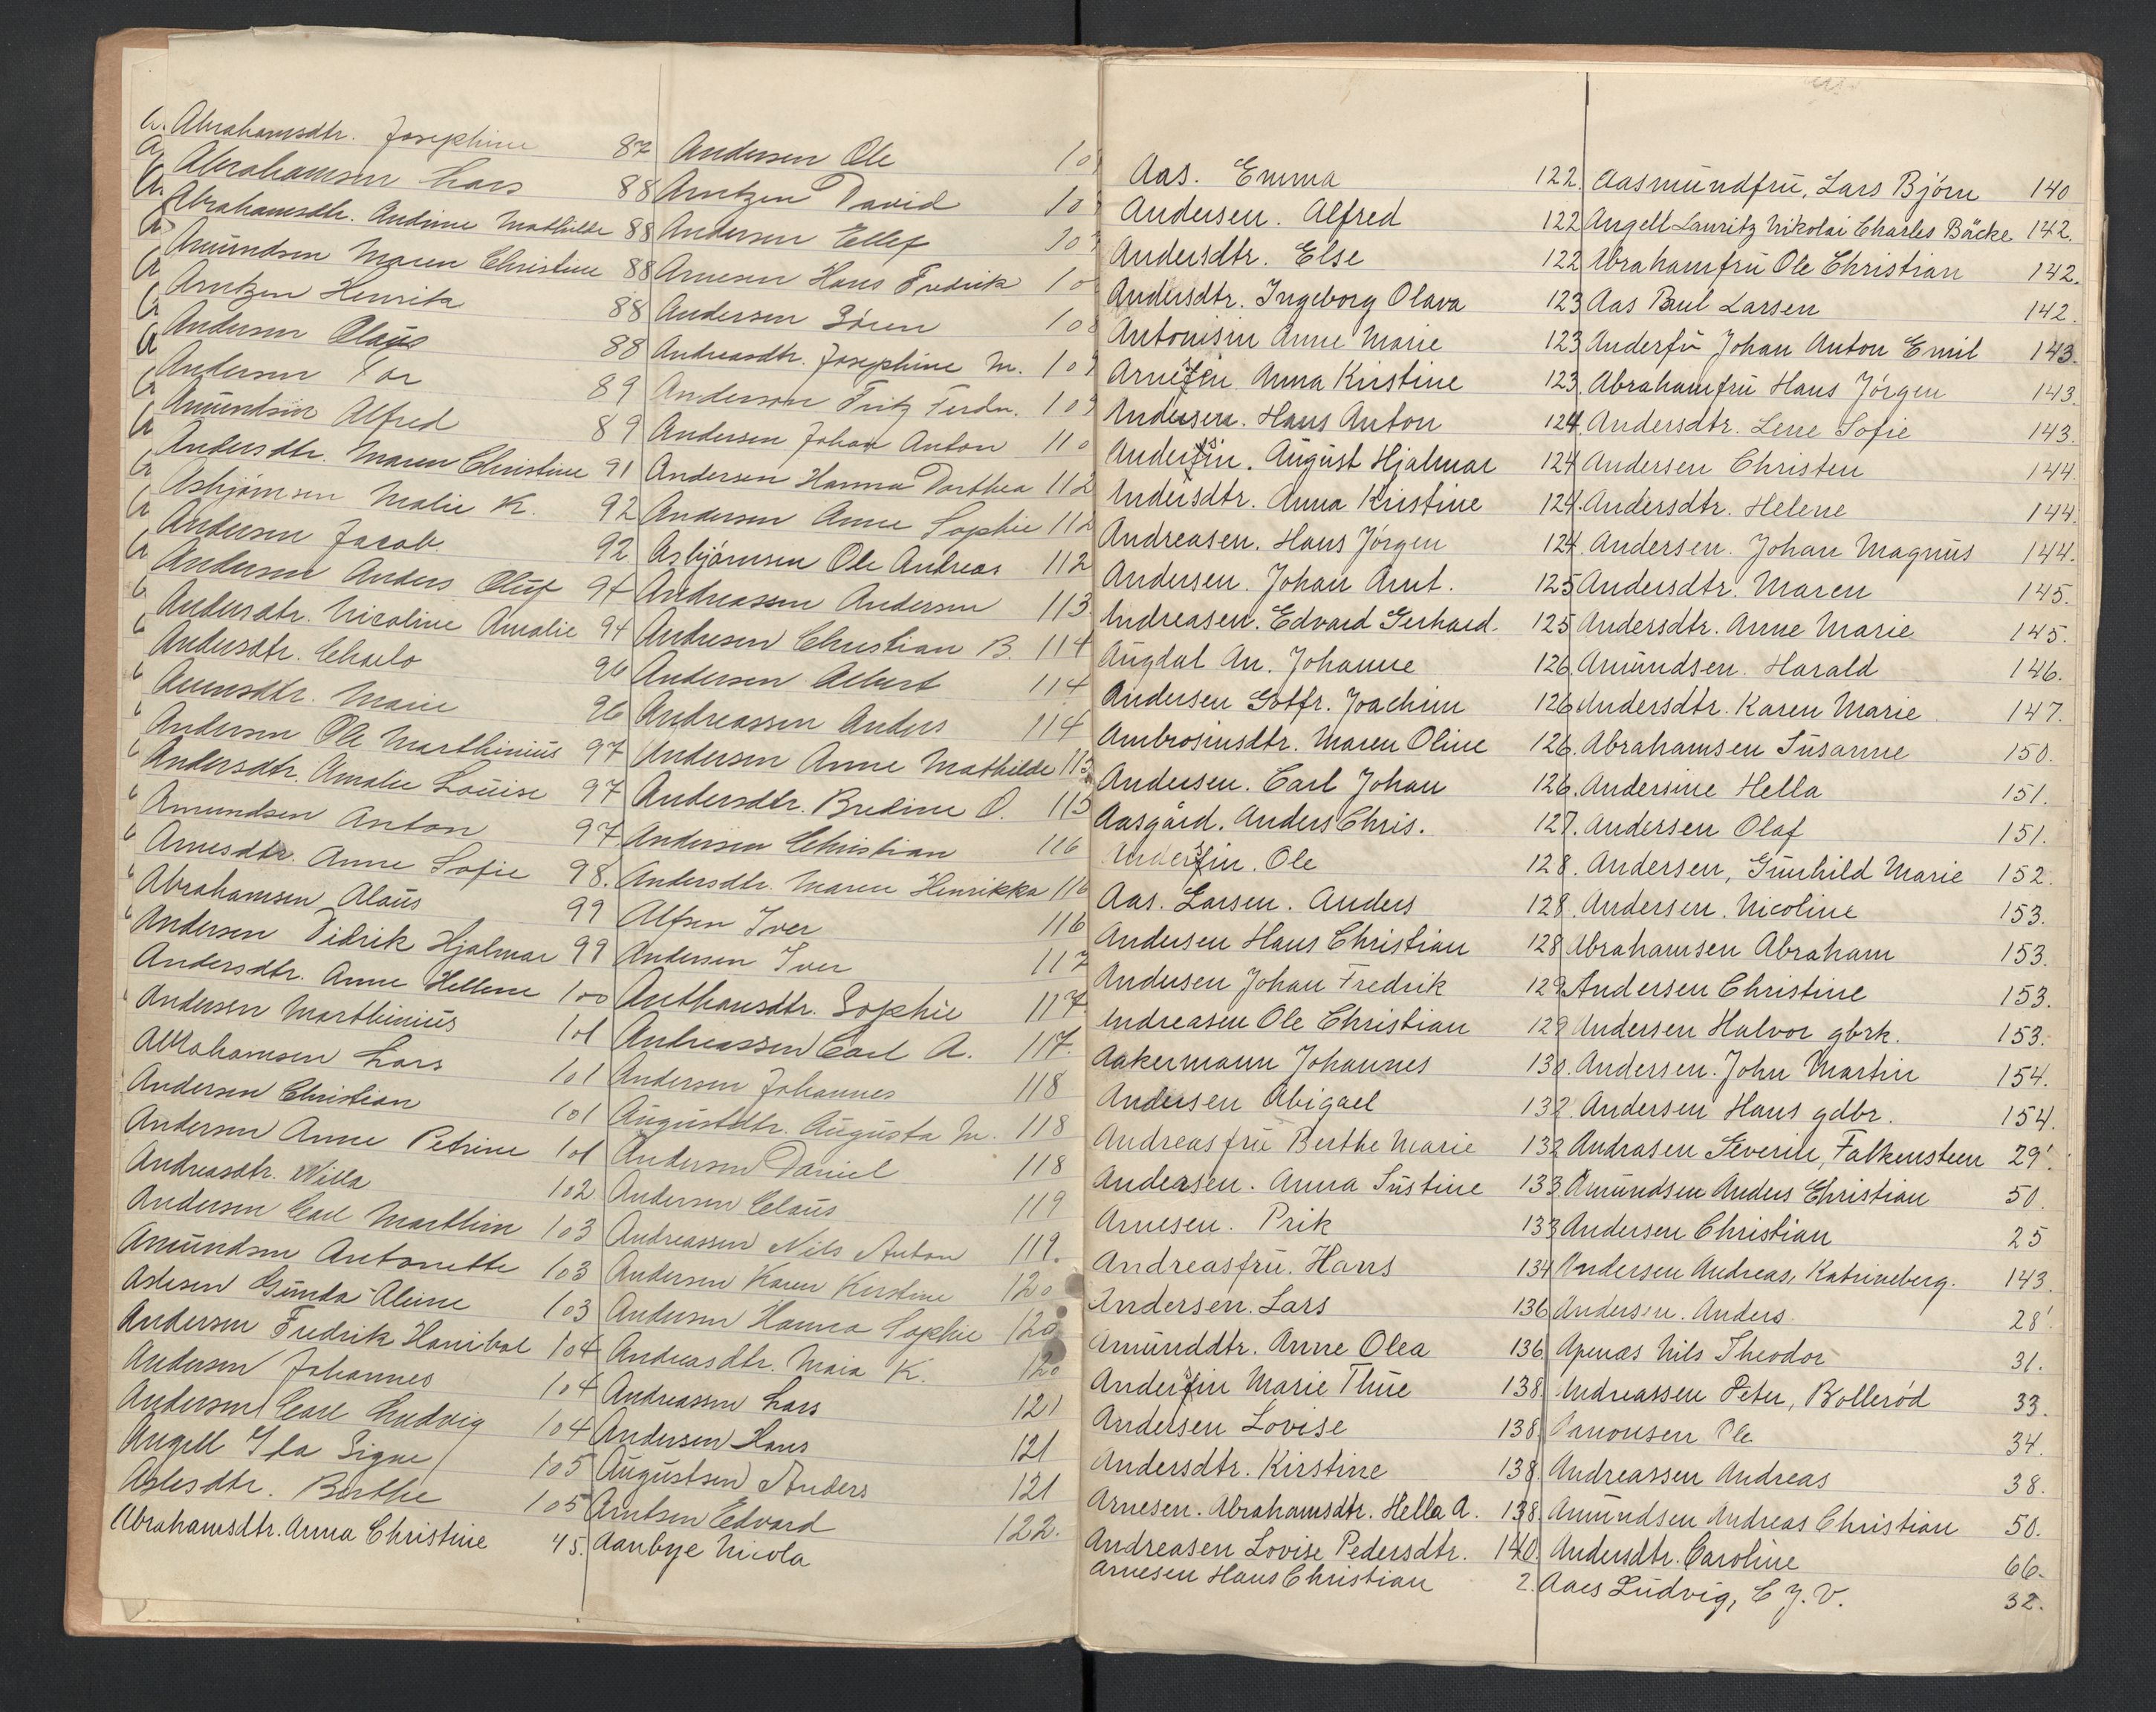 Abrahamsdtr. Josephine 87
Abrahamsen Lars 88
Abrahamsdtr. Andrine Mathilde 88
Amundsen Maren Christine 88
Arntzen Henrik 88
Andersen Olaus 88
Andersen 89
Amundsen Alfred 89
Andersdtr. Maren Christine 91
Asbjørnsen Malie K. 92
Andersen Jacob 92
Andersen Anders Oluf 94
Andersdtr. Nicoline Amalie 94
Andersdtr. Charlo 96
Marie 96
Andersen Ole Marthinius 97
Andersdtr. Amalie Louise 97
Amundsen Anton 97
Arnesdtr. Anne Sofie 98.
Abrahamsen Olaus 99
Andersen Didrik Hjalmar 99
Andersdtr. Anne Hellene 100
Andersen Marthinius 101
Abrahamsen Lars 101
Andersen Christian 101
Andersen Anne Petrine 101
Andreasdtr. Willa 102
Andersen Carl Marthin 103
Amundsen Antonette 103
Aslesen Gunda Aline 103
Andersen Fredrik Hanibal 104
Andersen Johannes 104
Andersen Carl Ludvig 104
Angell Ida Signe 105
Aslesdtr. Berthe 105
Abrahamsdtr. Anna Christine 45.
Andersen Ole
Arntzen David
Andersen Ellef
Arnesen Hans Fredrik
Andersen Sören 108
Andreasdtr. Josephine M. 109
Andersen Fritz Ferdn. 109
Andersen Johan Anton 110
Andersen Hanna Dorthea 112
Andersen Anne Sophie 112
Asbjørnsen Ole Andreas 112
Andreassen Andersen 113
Andresen Christian B. 114
Andersen Albert 114
Andreassen Anders 114
Andersen Anne Mathilde 115
Andersdtr. Bredine O. 115
Andersen Christian 116
Andersdtr. Maren Henrikka 116
Alfsen Iver 116
Andersen Iver 117
Anthonsdtr. Sophie 117
Andreassen Carl A. 117.
Andersen Johannes 118
Augustdtr. Augusta M. 118
Andersen Daniel 118
Andersen Claus 119
Andreassen Nils Anton 119.
Andersen Karen Kirstine 120
Andersen Hanna Sophie 120
Andreasdtr. Maia K. 120
Andreassen Lars 121
Andersen Hans 121
Augustsen Anders 121
Arntsen Edvard 122.
Aanbye Nicola
Aas. Emma 122.
Andersen. Alfred 122
Andersdtr. Else 122
Andersdtr. Ingeborg Olava 123
Antonisen Anne Marie 123
Arnesen Anna Kristine 123
Andersen. Hans Anton 124.
Andersen. August Hjalmar 124
Andersdtr. Anna Kristine 124.
Andreasen. Hans Jørgen 124.
Andersen. Johan Arnt. 125
Andreasen. Edvard Gerhard. 125
Augdal An. Johanne 126.
Andersen Gotfr. Joachim 126
Ambrosinsdtr. Maren Oline 126.
Andersen. Carl Johan 126.
Aasgård. Anders Chris. 127.
Andersen. Ole 128.
Aas. Larsen. Anders 128.
Andersen Hans Christian 128
Andersen Johan Fredrik 129
Andreasen Ole Christian 129
Aakermann Johannes 130.
Andersen Abigael 132
Andreasfru Berthe Marie 132
Andeasen. Anna Justine 133
Arnesen. Prik 133
Andreasfru. Hans 134
Andersen. Lars 136
Amunddtr. Anne Olea 136.
Andersen Marie Thue 138.
Andersen Lovise 138.
Andersdtr. Kirstine 138.
Arnesen. Abrahamsdtr. Hella A. 138.
Andreasen Lovise Pedersdtr. 140.
Arnesen Hans Christian 2.
Aasmundfru, Lars Bjørn 140
Angell Lauritz Nikolai Charles Bäcke 142.
Abrahamfru Ole Christian 142.
Aas Paul Larsen 142.
Anderfu Johan Anton Emil 143.
Abrahamfru Hans Jørgen 143.
Andersdtr. Lene Sofie 143.
Andersen Christen 144.
Andersdtr. Helene 144.
Andersen. Johan Magnus 144.
Andersdtr. Maren 145.
Andersdtr. Anne Marie 145.
Amundsen. Harald 146.
Andersdtr. Karen Marie 147.
Abrahamsen Susanne 150.
Andersine Hella 151.
Andersen Olaf 151.
Andersen, Gunhild Marie 152.
Andersen. Nicoline 153.
Abrahamsen Abraham 153.
Andersen Christine 153.
Andersen Halvor gbrk. 153.
Andersen. John Martin 154.
Andersen Hans gdbr. 154.
Andrasen Severin, Falkensteen 29'.
Amundsen Anders Christian 50.
Andersen Christian 25
Andersen Andreas, Katrineberg. 143.
Andersen. Anders 28'.
Apenæs Nils Theodor 31.
Andreassen Peter, Bollerød 33.
Ole 34.
Andreassen Andreas 38.
Amundsen Andreas Christian 50.
Andersdtr. Caroline 66.
Aaes Ludvig, C. J. V. 32.